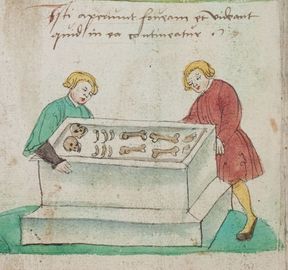 Isti aperiunt foueam et videant
quid in ea contineatur .